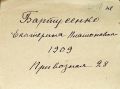 Бартусенко
Екатерина Платоновна
1909
Привозная 28